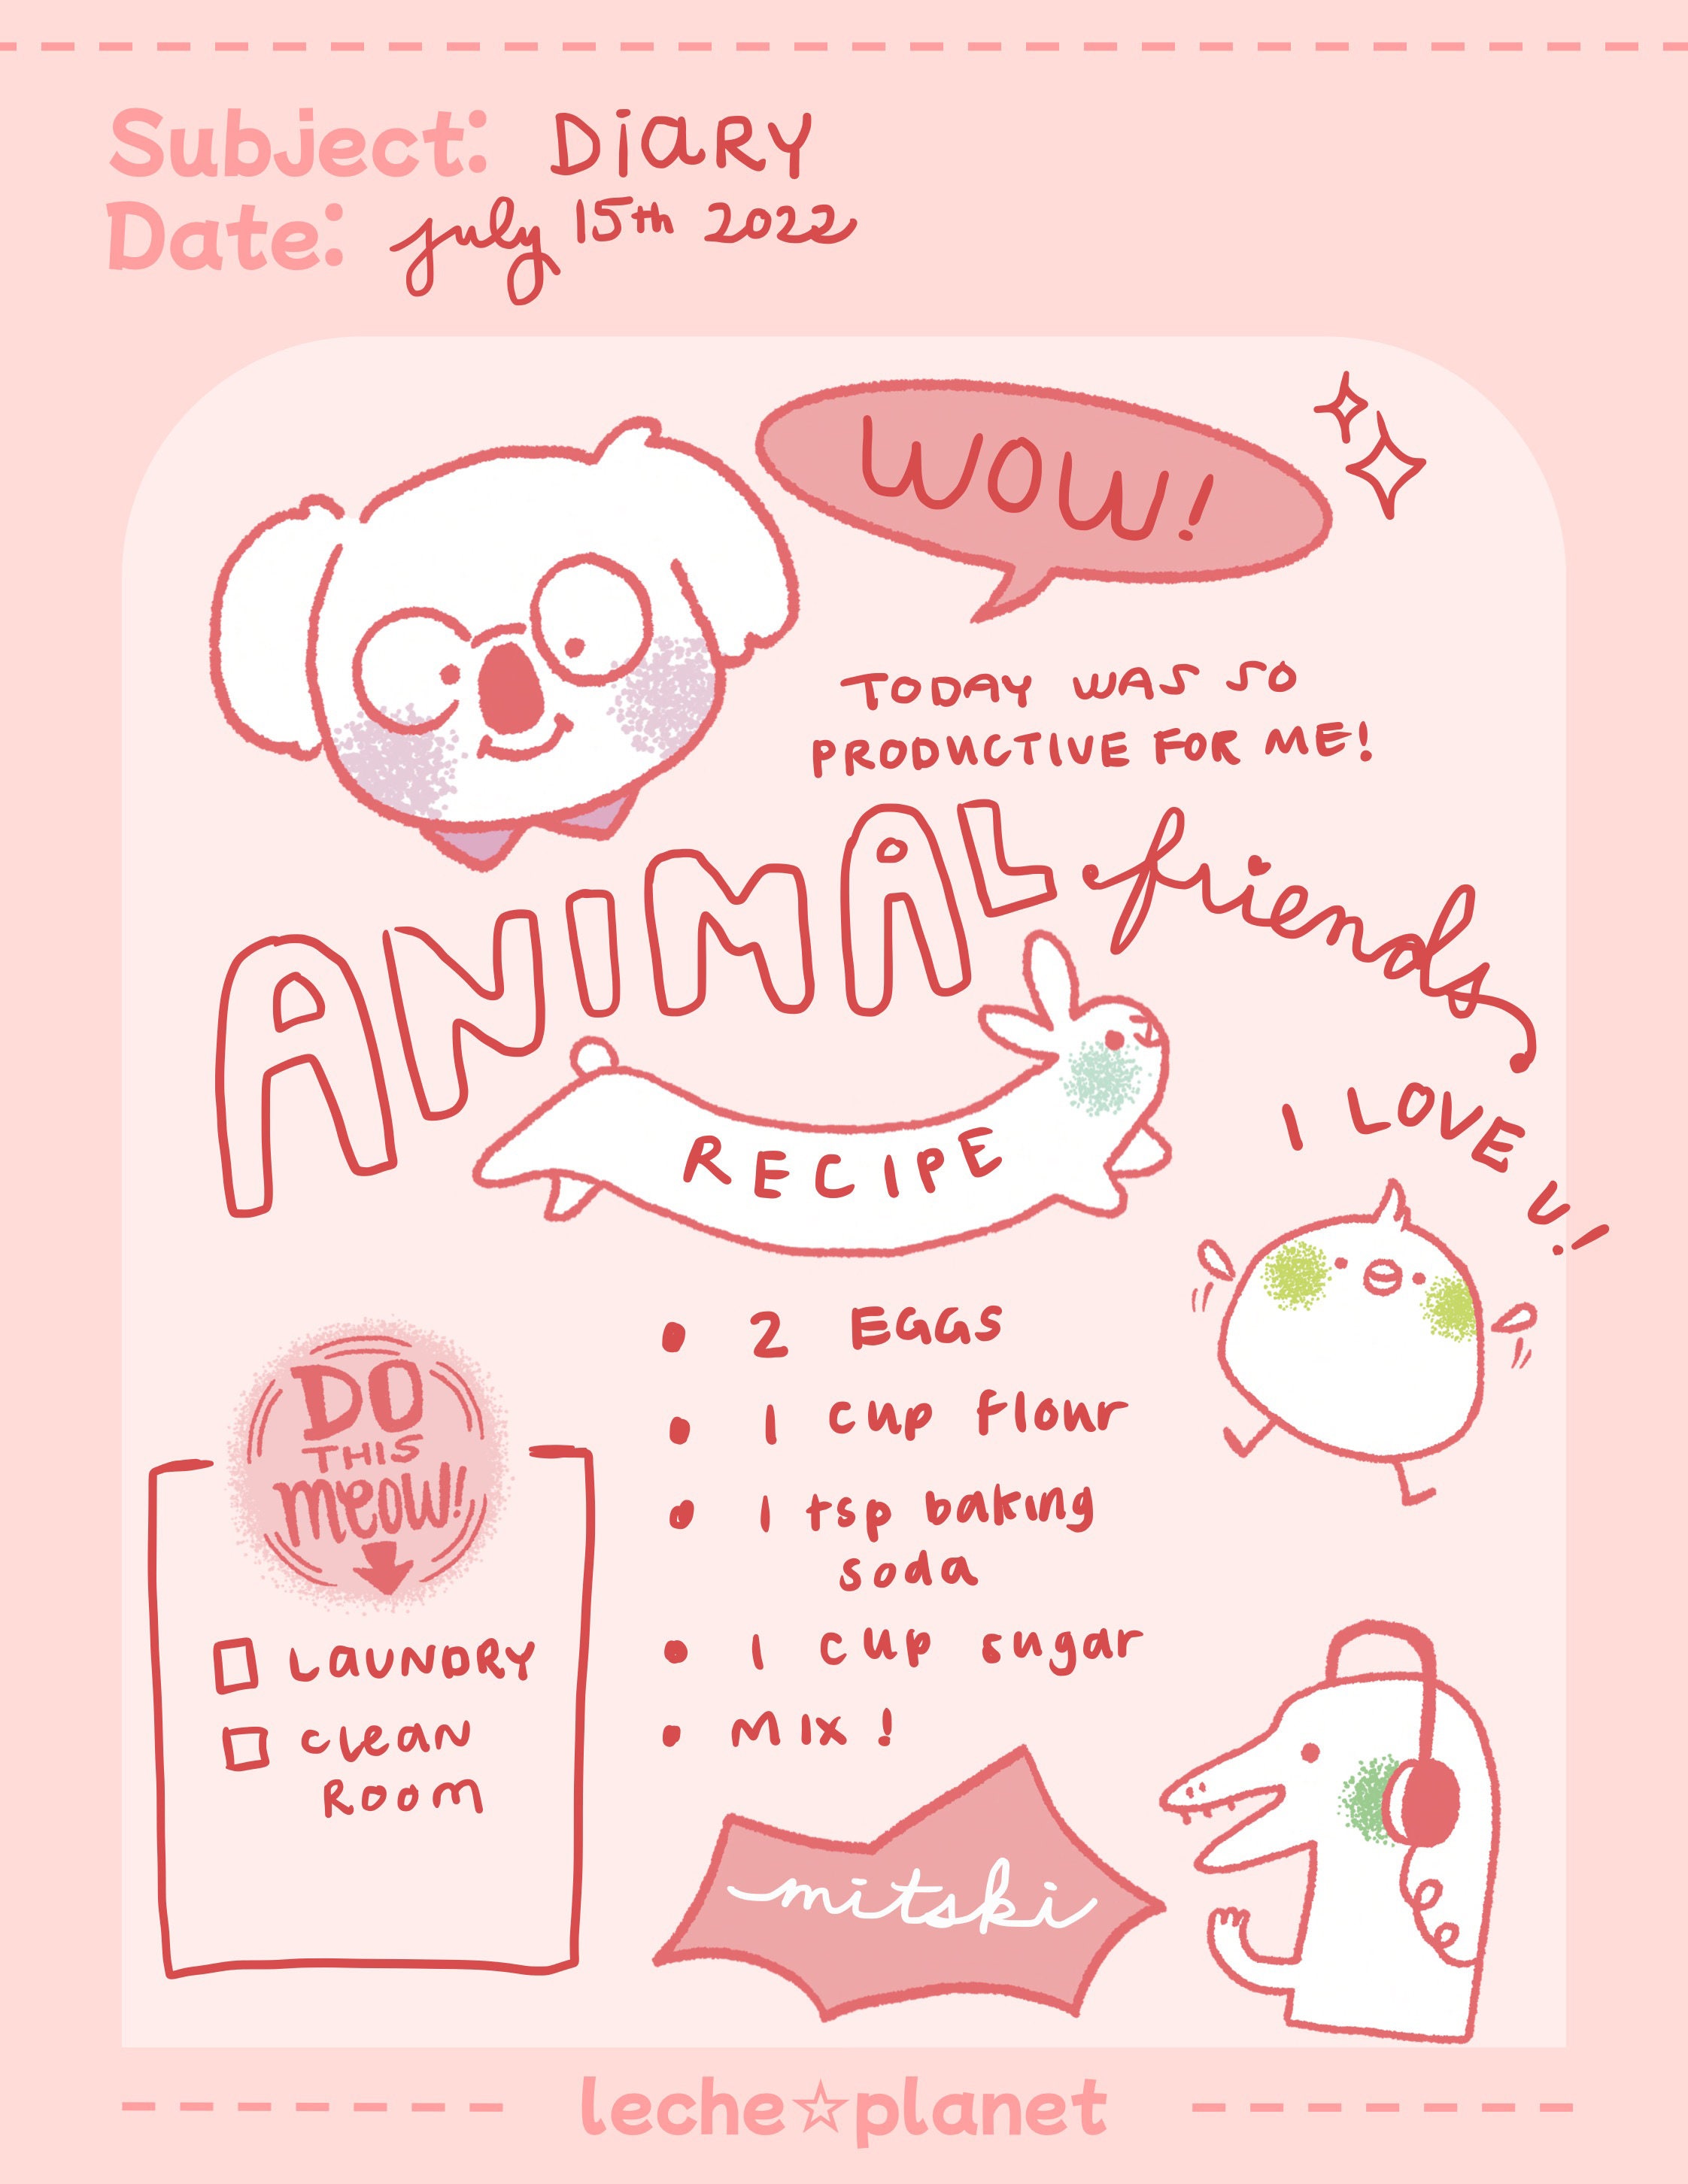 Subject: Diary
Date: july 15th 2022
WOW!
TODAY WAS SO
PRODUCTIVE FOR ME!
ANIMAL friends
RECIPE
I LOVE U!
• 2 EGGS
• 1 cup flour
• 1 tsp baking
soda
• 1 cup sugar
• MIX!
DO
THIS
meow!
LAUNDRY
clean
Room
mitski
leche☆planet